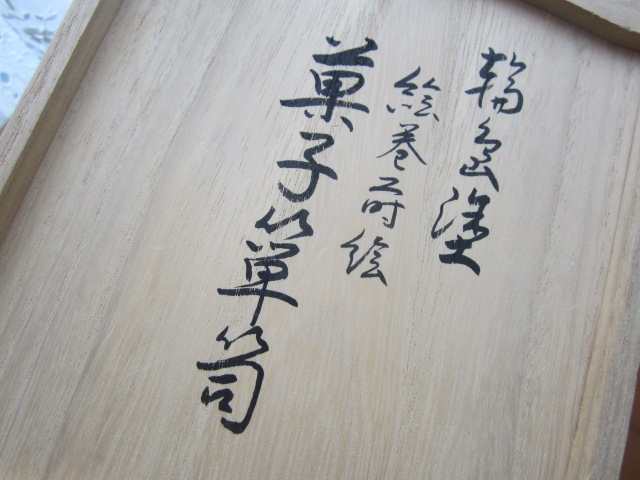 輪島塗
絵巻蒔絵
菓子箪笥